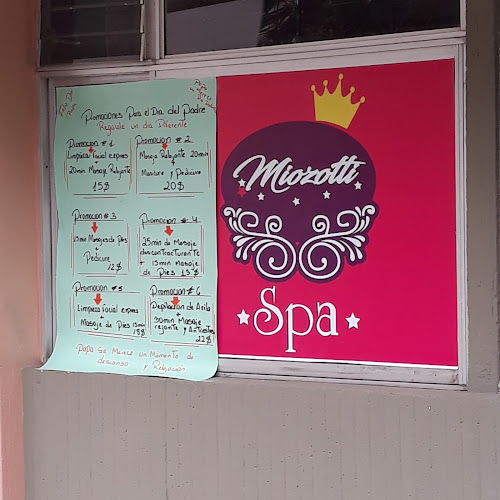 Promociones Para el Dia del Padre
Regarde un dia Diferente
Promocion # 1
Limpieza facial expres
+
20min Masaje Relajante
15$
Promocion # 2
Masaje Relajante 20min
+
Manicure y Pedicure
20$
Promocion # 3
15min Masajes de Pies
+
Pedicure
12$
Promocion # 4
25min de Masaje
descontracturante
+ 15min Masaje
de Pies 15$
Promocion # 5
Limpieza facial expres
+
Masaje de Pies 15min
15$
Promocion # 6
Depilacion de Axila
+
30min Masaje
y Antiestres
22$
Papa se Merece un Momento de
descanso y Relajacion
Miozotti
Spa